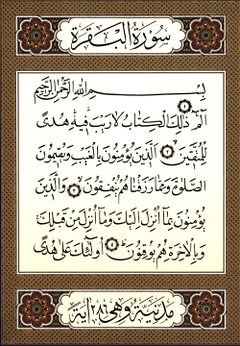 سُورَةُ الْبَقَرَةِ
بِسْمِ اللهِ الرَّحْمٰنِ الرَّحِيمِ
الٓمٓ ١ ذٰلِكَ الْكِتَابُ لَا رَيْبَ فِيهِ هُدًى
لِلْمُتَّقِينَ ٢ الَّذِينَ يُؤْمِنُونَ بِالْغَيْبِ وَيُقِيمُونَ
الصَّلٰوةَ وَمِمَّا رَزَقْنَاهُمْ يُنْفِقُونَ ٣ وَالَّذِينَ
يُؤْمِنُونَ بِمَا أُنْزِلَ إِلَيْكَ وَمَا أُنْزِلَ مِنْ قَبْلِكَ
وَبِالْاٰخِرَةِ هُمْ يُوقِنُونَ ٤ أُولٰئِكَ عَلٰى هُدًى
مَدَنِيَّةٌ وَهِيَ ٢٨٦ اٰيَةً